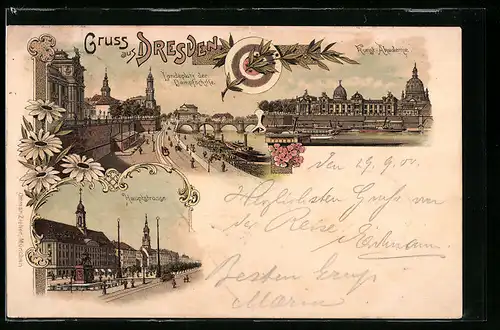 Gruss
aus DRESDEN
Landeplatz der
Dampfschiffe.
Kunst-Akademie.
Hauptstrasse
Ottmar Zieher, München
den 29.9.
Herzlichsten Gruß von
der Reise
Besten Gruß
Maria